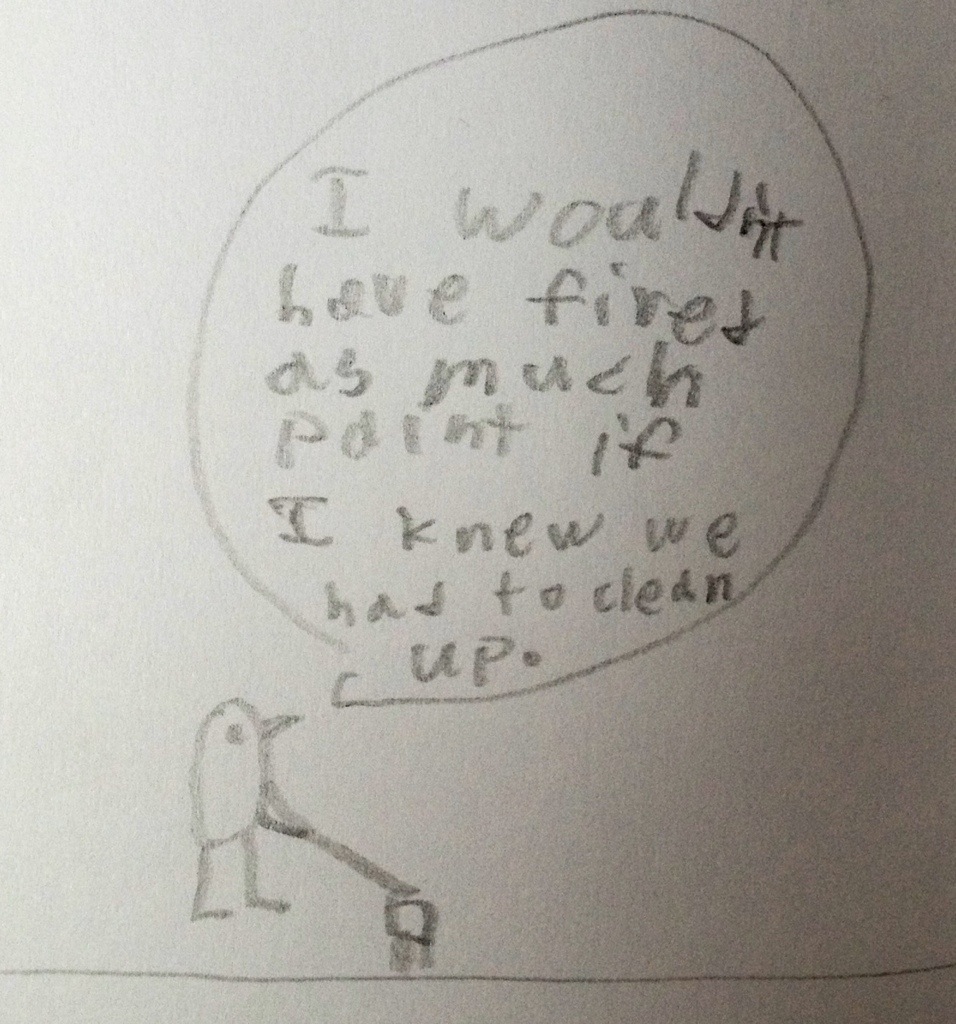 I wouldn't
have fired
as much
paint if
I knew we
had to clean
up.